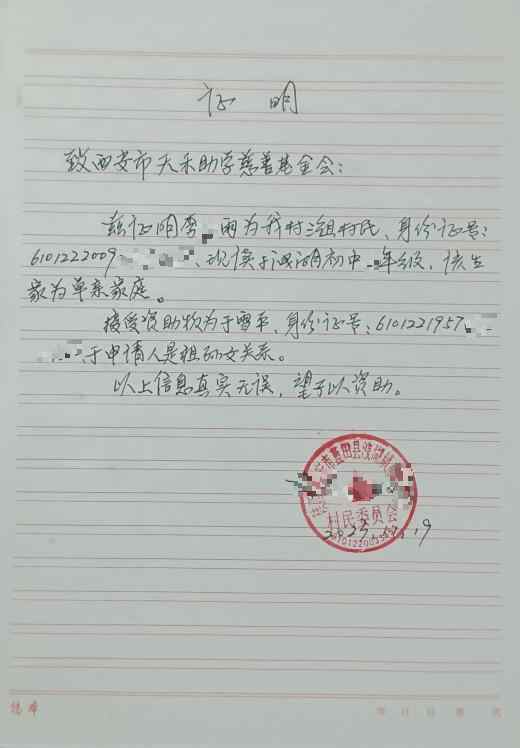 证 明
致西安市天禾助学慈善基金会:
兹证明李 雨为我村三组村民、身份证号:
6101222009 、现读于洩湖初中 年级,该生
家为单亲家庭。
接受资助款为于雪平,身份证号:6101221957
于申请人是祖孙女关系。
以上信息真实无误,望予以资助。
市蓝田县洩湖镇
村民委员会
2023. 9
德丰